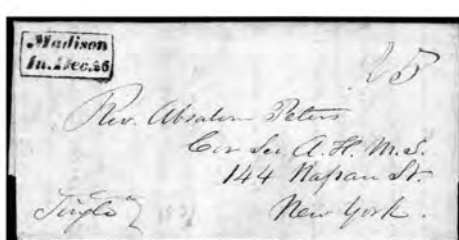 Madison
In. Dec. 26
25
Rev. Absalom Peters
Cor Sec A. H. M. S.
144 Nassau St.
New York.
Single